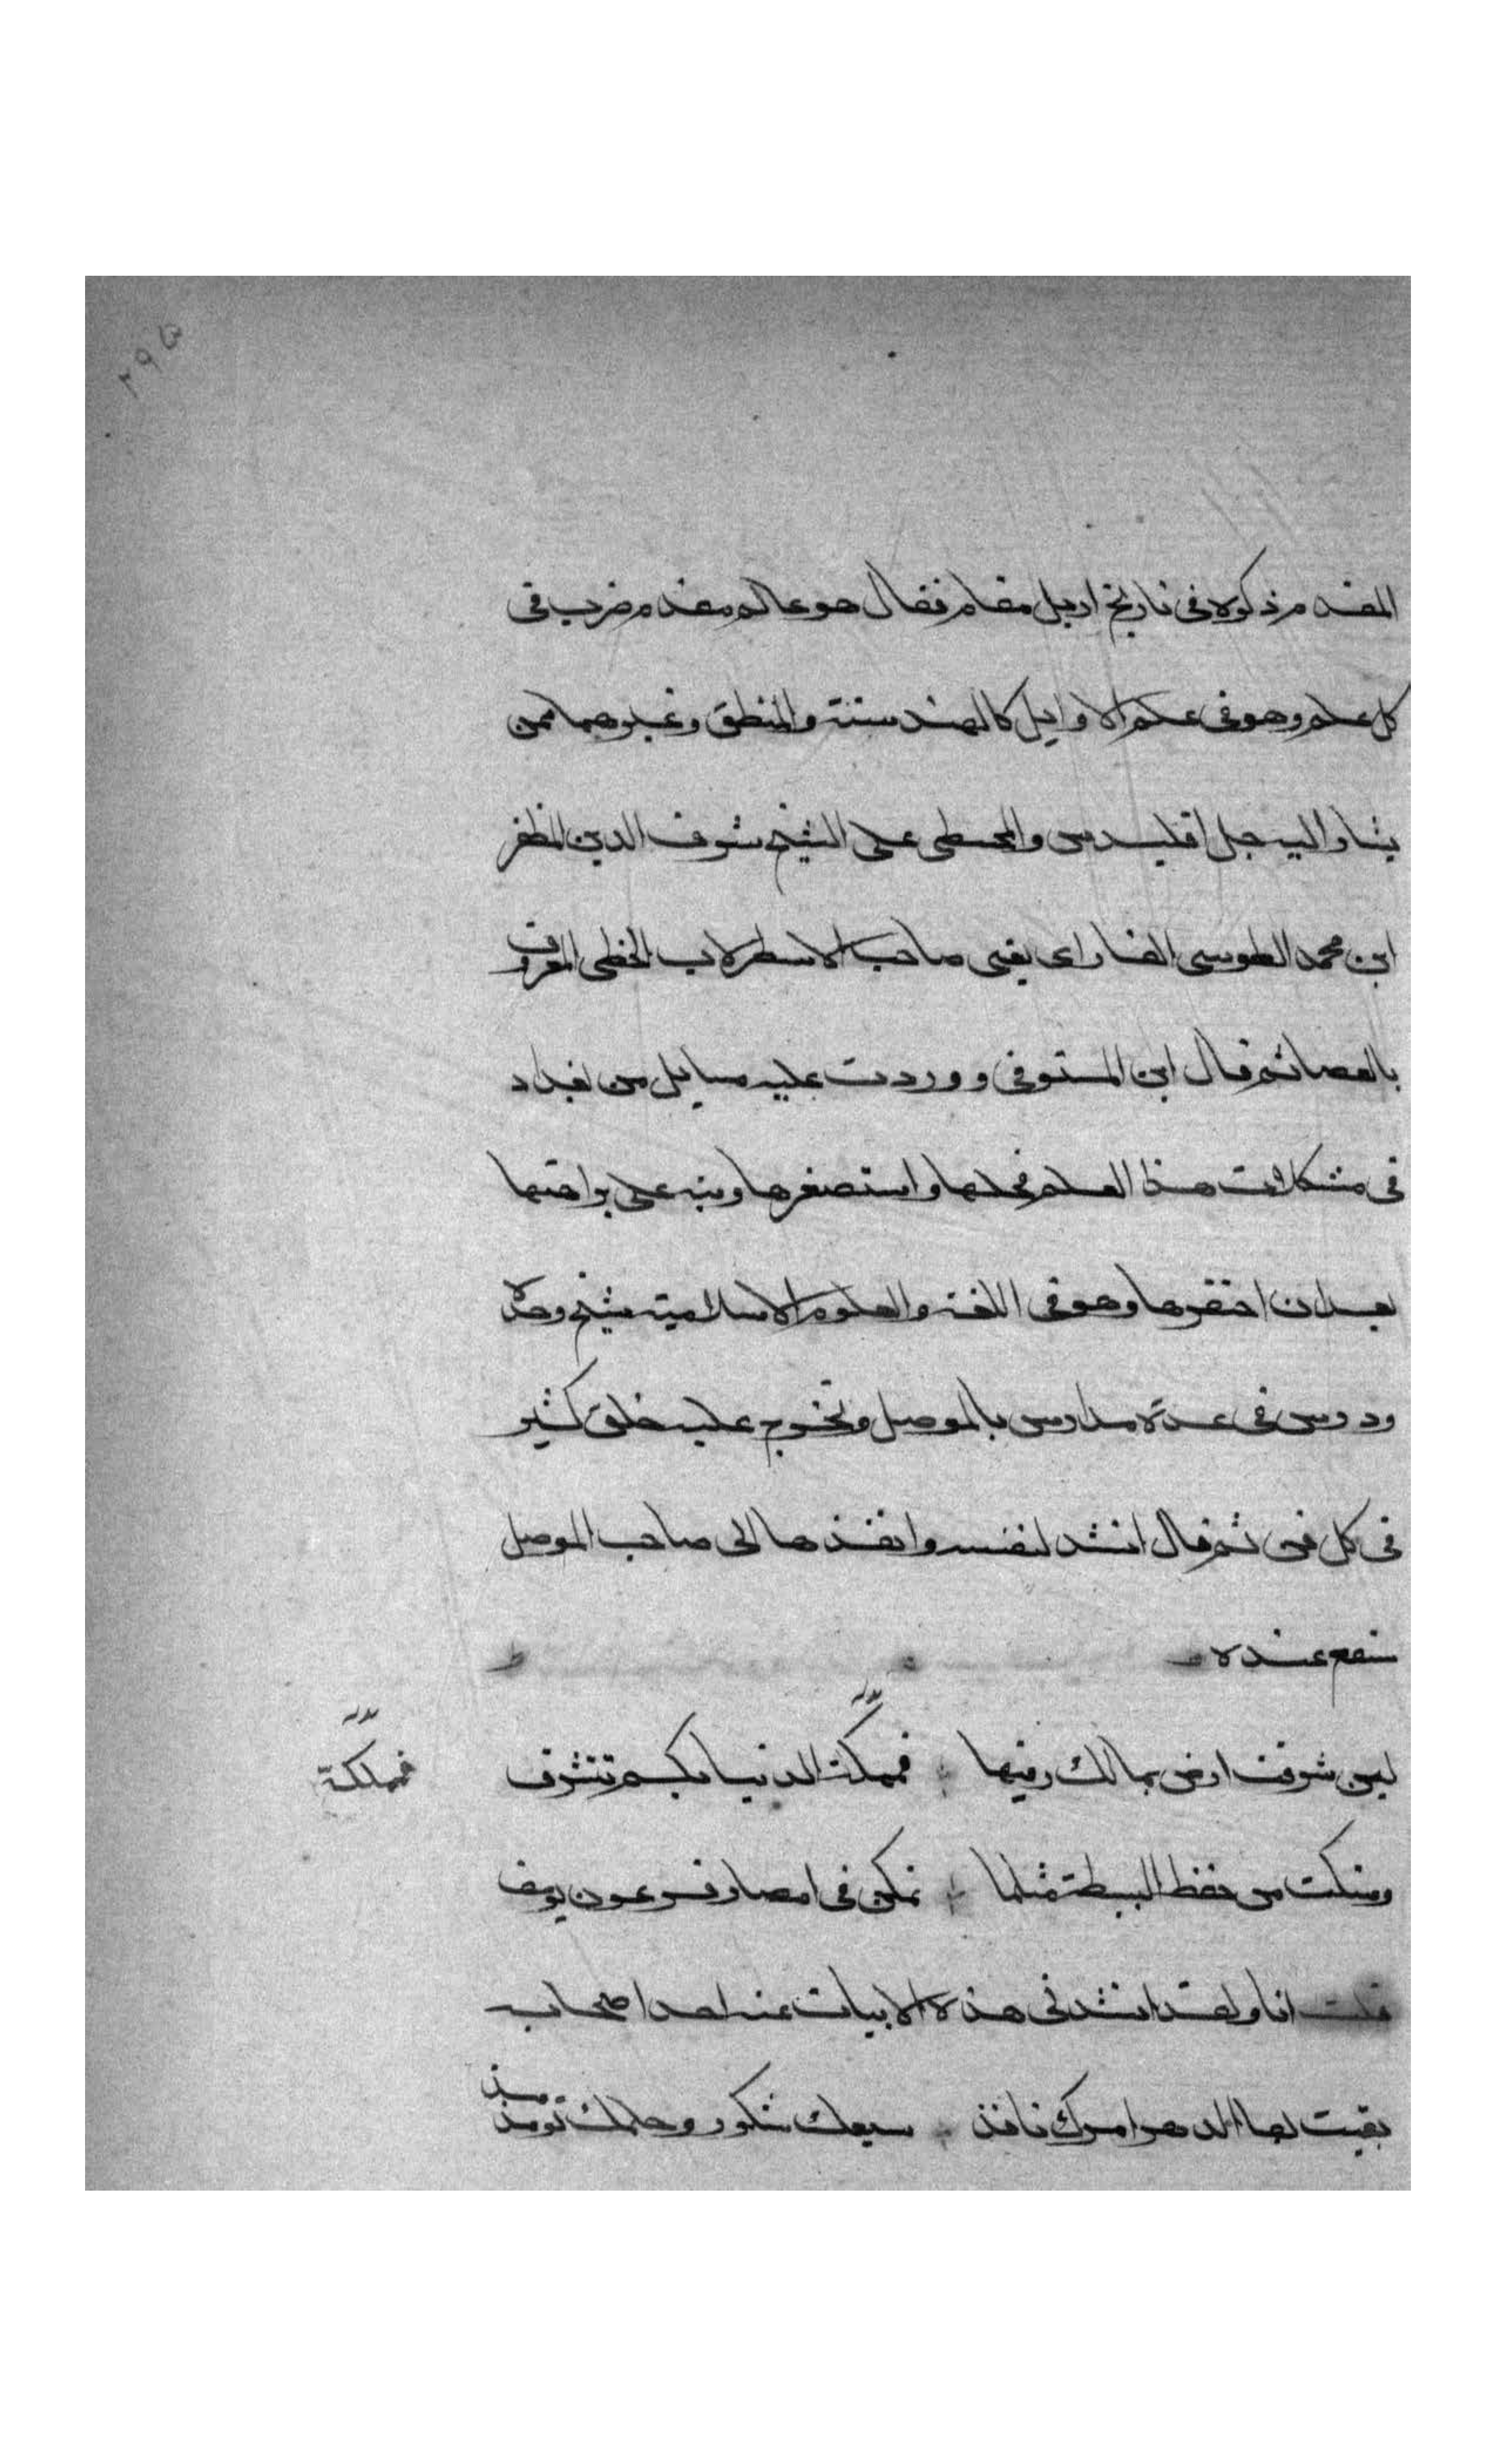 ٢٩٥
المقدم ذكره فى تاريخ اربل مقام فقال هو عالم مقدم ضرب فى
كل علم وهو فى علم الاوايل كالهندسة والمنطق وغيرهما ممن
يشار اليه حل اقليدس والمجسطى على الشيخ شرف الدين المظفر
ابن محمد الطوسى الفارابى يعنى صاحب الاسطرلاب الخطى المعروف
بالعصا ثم قال ابن المستوفى ووردت عليه مسايل من بغداد
فى مشكلات هذا العلم فحلها واستصغرها ونبه على براهينها
بعد ان احتقرها وهو فى اللغة والعلوم الاسلامية شيخ وحده
ودرس فى عدة مدارس بالموصل وتخرج عليه خلق كثير
فى كل فن ثم قال انشد لنفسه وانفذها الى صاحب الموصل
عنده
لين شرفت ارض بمالك رقها فمملكة الدنيا بكم تتشرف
فمملكة
ومكنت من حفظ البسيطة مثلما تمكن فى امصار فرعون يوسف
قلت انا ولقد انشدنى هذه الابيات عنه احد اصحابه
بقيت بقا الدهر امرك نافذ سعيك مشكور وحكمك